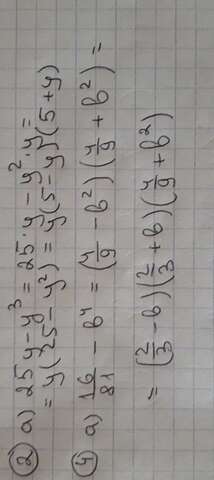 ② а) 25y-y³ = 25·y-y²·y =
= y(25-y²) = y(5-y)(5+y)
④ а) 16/81 - b⁴ = (4/9 - b²)(4/9 + b²) =
= (2/3 - b)(2/3 + b)(4/9 + b²)